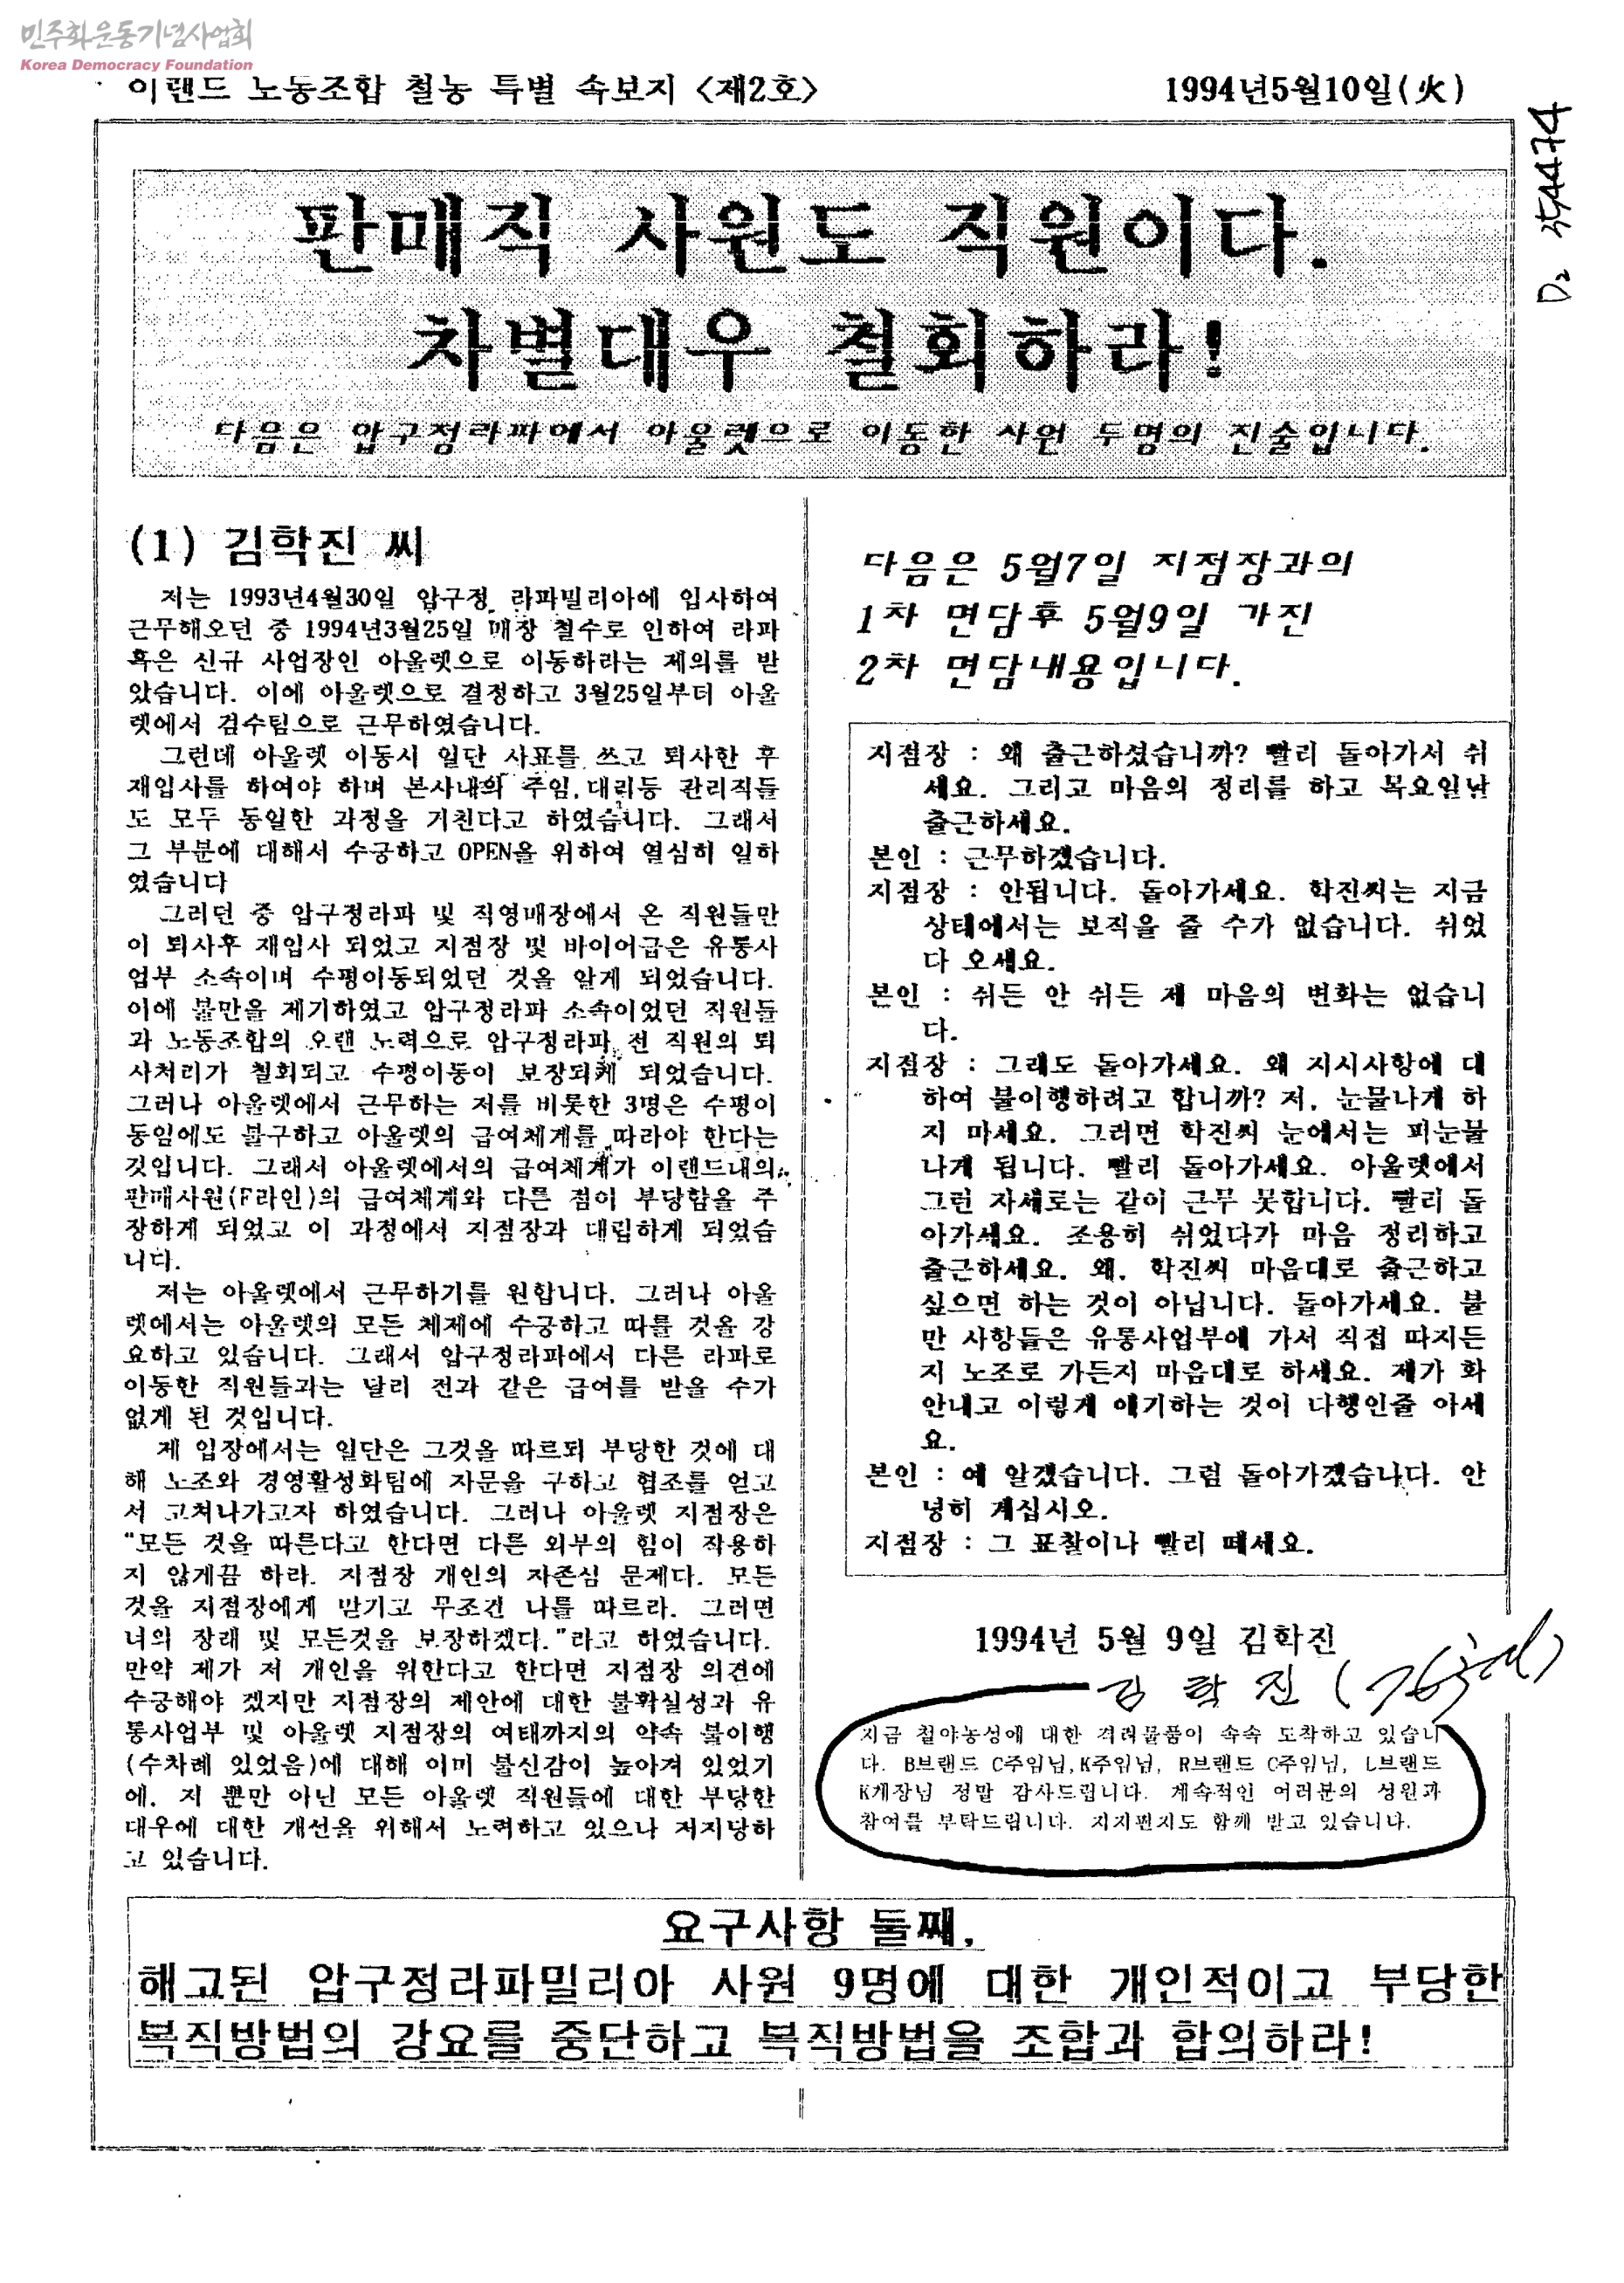 민주화운동기념사업회
Korea Democracy Foundation
이랜드 노동조합 철농 특별 속보지 <제2호>
1994년5월10일(火)
D2 354474
판매직 사원도 직원이다.
차별대우 철회하라!
다음은 압구정라파에서 아울렛으로 이동한 사원 두명의 진술입니다.
(1) 김학진 씨
저는 1993년4월30일 압구정 라파밀리아에 입사하여
근무해오던 중 1994년3월25일 매장 철수로 인하여 라파
혹은 신규 사업장인 아울렛으로 이동하라는 제의를 받
았습니다. 이에 아울렛으로 결정하고 3월25일부터 아울
렛에서 검수팀으로 근무하였습니다.
그런데 아울렛 이동시 일단 사표를 쓰고 퇴사한 후
재입사를 하여야 하며 본사내의 주임,대리등 관리직들
도 모두 동일한 과정을 거친다고 하였습니다. 그래서
그 부분에 대해서 수긍하고 OPEN을 위하여 열심히 일하
였습니다
그러던 중 압구정라파 및 직영매장에서 온 직원들만
이 퇴사후 재입사 되었고 지점장 및 바이어급은 유통사
업부 소속이며 수평이동되었던 것을 알게 되었습니다.
이에 불만을 제기하였고 압구정라파 소속이었던 직원들
과 노동조합의 오랜 노력으로 압구정라파 전 직원의 퇴
사처리가 철회되고 수평이동이 보장되게 되었습니다.
그러나 아울렛에서 근무하는 저를 비롯한 3명은 수평이
동임에도 불구하고 아울렛의 급여체계를 따라야 한다는
것입니다. 그래서 아울렛에서의 급여체계가 이랜드내의
판매사원(F라인)의 급여체계와 다른 점이 부당함을 주
장하게 되었고 이 과정에서 지점장과 대립하게 되었습
니다.
저는 아울렛에서 근무하기를 원합니다. 그러나 아울
렛에서는 아울렛의 모든 체제에 수긍하고 따를 것을 강
요하고 있습니다. 그래서 압구정라파에서 다른 라파로
이동한 직원들과는 달리 전과 같은 급여를 받을 수가
없게 된 것입니다.
제 입장에서는 일단은 그것을 따르되 부당한 것에 대
해 노조와 경영활성화팀에 자문을 구하고 협조를 얻고
서 고쳐나가고자 하였습니다. 그러나 아울렛 지점장은
"모든 것을 따른다고 한다면 다른 외부의 힘이 작용하
지 않게끔 하라. 지점장 개인의 자존심 문제다. 모든
것을 지점장에게 맡기고 무조건 나를 따르라. 그러면
너의 장래 및 모든것을 보장하겠다."라고 하였습니다.
만약 제가 저 개인을 위한다고 한다면 지점장 의견에
수긍해야 겠지만 지점장의 제안에 대한 불확실성과 유
통사업부 및 아울렛 지점장의 여태까지의 약속 불이행
(수차례 있었음)에 대해 이미 불신감이 높아져 있었기
에, 저 뿐만 아닌 모든 아울렛 직원들에 대한 부당한
대우에 대한 개선을 위해서 노력하고 있으나 저지당하
고 있습니다.
다음은 5월7일 지점장과의
1차 면담후 5월9일 가진
2차 면담내용입니다.
지점장 : 왜 출근하셨습니까? 빨리 돌아가서 쉬
세요. 그리고 마음의 정리를 하고 목요일날
출근하세요.
본인 : 근무하겠습니다.
지점장 : 안됩니다. 돌아가세요. 학진씨는 지금
상태에서는 보직을 줄 수가 없습니다. 쉬었
다 오세요.
본인 : 쉬든 안 쉬든 제 마음의 변화는 없습니
다.
지점장 : 그래도 돌아가세요. 왜 지시사항에 대
하여 불이행하려고 합니까? 저, 눈물나게 하
지 마세요. 그러면 학진씨 눈에서는 피눈물
나게 됩니다. 빨리 돌아가세요. 아울렛에서
그런 자세로는 같이 근무 못합니다. 빨리 돌
아가세요. 조용히 쉬었다가 마음 정리하고
출근하세요. 왜, 학진씨 마음대로 출근하고
싶으면 하는 것이 아닙니다. 돌아가세요. 불
만 사항들은 유통사업부에 가서 직접 따지든
지 노조로 가든지 마음대로 하세요. 제가 화
안내고 이렇게 얘기하는 것이 다행인줄 아세
요.
본인 : 예 알겠습니다. 그럼 돌아가겠습니다. 안
녕히 계십시오.
지점장 : 그 표찰이나 빨리 떼세요.
1994년 5월 9일 김학진
김 학 진
지금 철야농성에 대한 격려물품이 속속 도착하고 있습니
다. B브랜드 C주임님,K주임님, R브랜드 C주임님, L브랜드
K계장님 정말 감사드립니다. 계속적인 여러분의 성원과
참여를 부탁드립니다. 지지편지도 함께 받고 있습니다.
요구사항 둘째,
해고된 압구정라파밀리아 사원 9명에 대한 개인적이고 부당한
복직방법의 강요를 중단하고 복직방법을 조합과 합의하라!